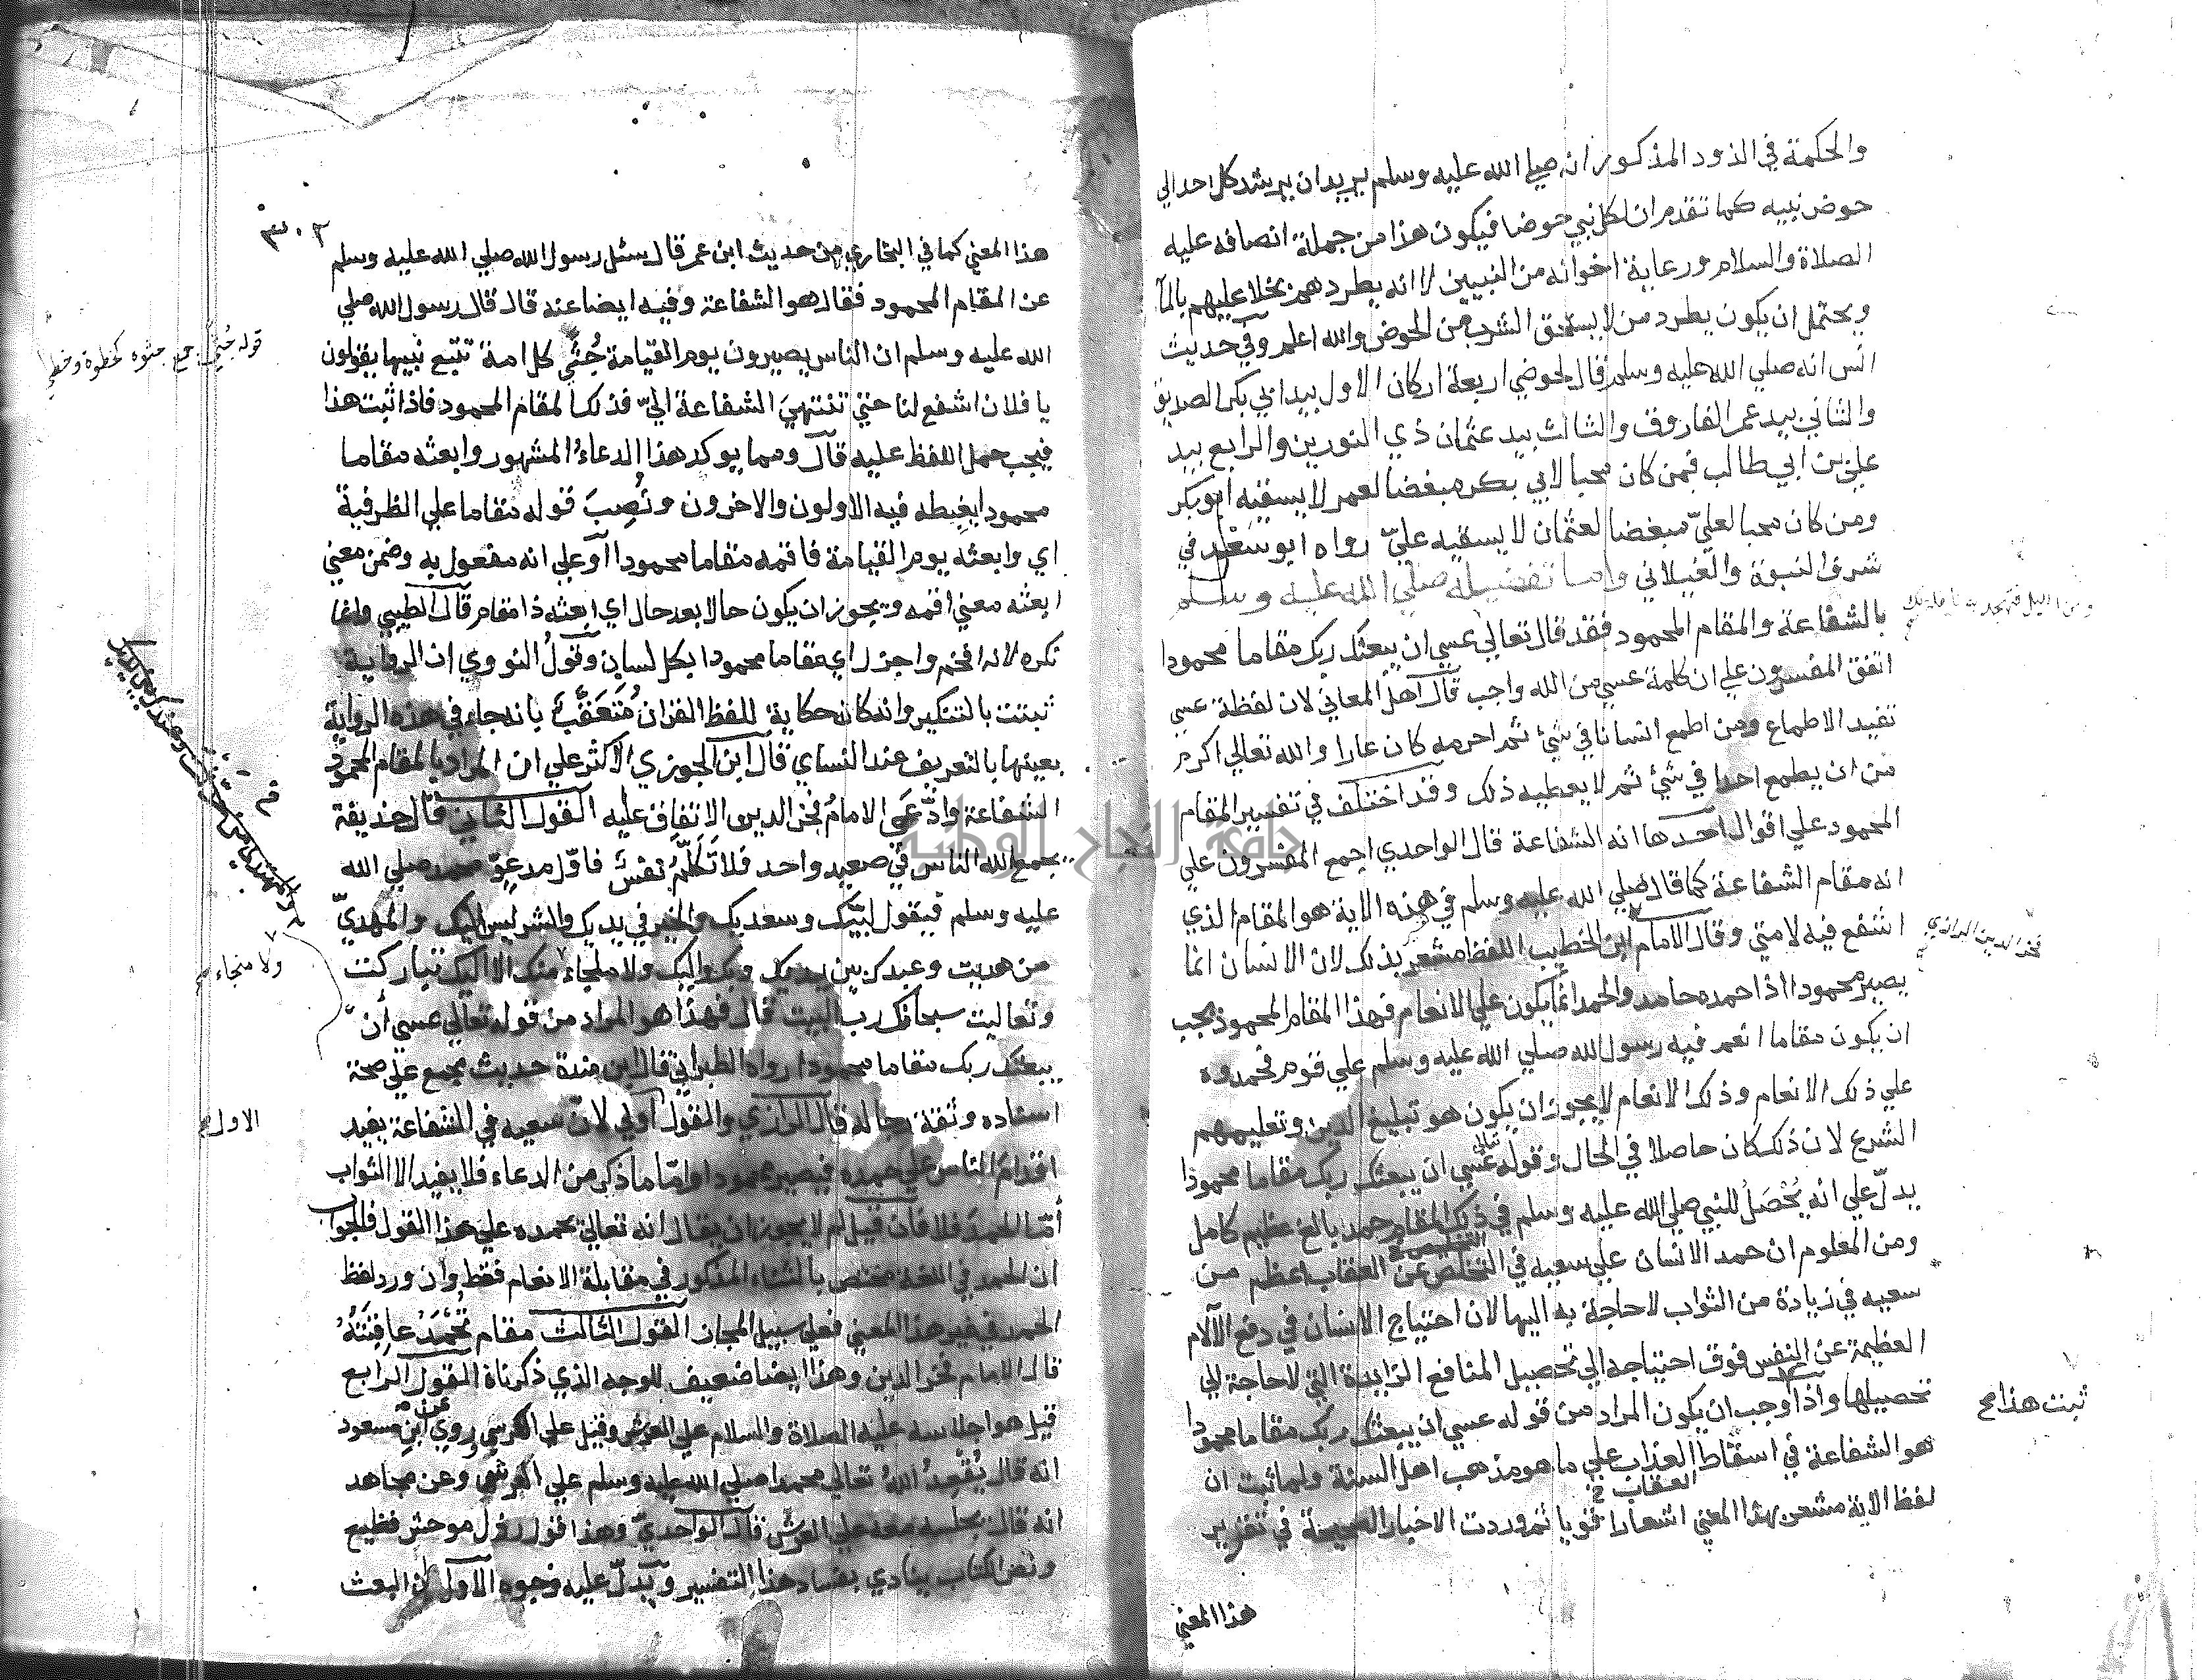 والحكمة في الذود المذكور انه صلي الله عليه وسلم يريد ان يرشد كل احد الي
حوض نبيه كما تقدم ان لكل نبي حوضا فيكون هذا من جملة انصافه عليه
الصلاة والسلام ورعاية اخوانه من النبيين لا انه يطردهم بخلا عليهم بالمآ
ويحتمل ان يكون يطرد من لا يستحق الشرب من الحوض والله اعلم وفي حديث
انس انه صلي الله عليه وسلم قال لحوضي اربعة اركان الاول بيد ابي بكر الصديق
والثاني بيد عمر الفاروق والثالث بيد عثمان ذي النورين والرابع بيد
علي بن ابي طالب فمن كان محبا لابي بكر مبغضا لعمر لا يسقيه ابو بكر
ومن كان محبا لعليّ مبغضا لعثمان لا يسقيه عليّ رواه ابو سعيد في
شرف النبوة والغيلاني واما تفضيله صلي الله عليه وسلم
بالشفاعة والمقام المحمود فقد قال تعالي عسي ان يبعثك ربك مقاما محمودا
اتفق المفسرون علي ان كلمة عسي من الله واجب قال اهل المعاني لان لفظة عسي
تفيد الاطماع ومن اطمع انسانا في شئ ثم احرمه كان عارا والله تعالي اكرم
من ان يطمع احدا في شئ ثم لا يعطيه ذلك وقد اختلف في تفسير المقام
المحمود علي اقوال احدها انه الشفاعة قال الواحدي اجمع المفسرون علي
انه مقام الشفاعة كما قال صلي الله عليه وسلم في هذه الاية هو المقام الذي
اشفع فيه لامتي وقال الامام ابن الخطيب اللفظ مشعر بذلك لان الانسان انما
يصير محمودا اذا حمده حامد والحمد انما يكون علي الانعام فهذا المقام المحمود يجب
ان يكون مقاما انعم فيه رسول الله صلي الله عليه وسلم علي قوم فحمدوه
علي ذلك الانعام وذلك الانعام لا يجوز ان يكون هو تبليغ الدين وتعليمهم
الشرع لان ذلك كان حاصلا في الحال وقوله تعالي عسي ان يبعثك ربك مقاما محمودا
يدلّ علي انه يُحْصَلُ للنبي صلي الله عليه وسلم في ذلك المقام حمد بالغ عظيم كامل
ومن المعلوم ان حمد الانسان علي سعيه في التخلص عن العقاب اعظم من
سعيه في زيادة من الثواب لا حاجة به اليها لان احتياج الانسان في دفع الآلام
العظيمة عن النفس فوق احتياجه الي تحصيل المنافع الزايدة التي لا حاجة الي
تحصيلها واذا وجب ان يكون المراد من قوله عسي ان يبعثك ربك مقاما محمودا
هو الشفاعة في اسقاط العذاب علي ما هو مذهب اهل السنة ولما ثبت ان
العقاب خ
لفظ الاية مشعر بهذا المعني اشعارا قويا ثم وردت الاخبار الصحيحة في تقرير
هذا المعني
ومن الليل فتهجد به نافلة لك
فخر الدين الرازي
ثبت هذا صح
٣٠٢
هذا المعني كما في البخاري من حديث ابن عمر قال سئل رسول الله صلي الله عليه وسلم
عن المقام المحمود فقال هو الشفاعة وفيه ايضا عنه قال قال رسول الله صلي
الله عليه وسلم ان الناس يصيرون يوم القيامة جُثًي كل امة تتبع نبيها يقولون
يا فلان اشفع لنا حتي تنتهيَ الشفاعة اليّ فذلك المقام المحمود فاذا ثبت هذا
فيجب حمل اللفظ عليه قال ومما يوكد هذا الدعاءُ المشهور وابعثه مقاما
محمودا يغبطه فيه الاولون والاخرون ونُصِبَ قوله مقاما علي الظرفية
اي وابعثه يوم القيامة فاقمه مقاما محمودا او علي انه مفعول به وضمن معني
ابعثه معني اقمه ويجوز ان يكون حالا بعد حال اي ابعثه ذا مقام قال الطيبي وانما
نكره لانه افخم واجزل اي مقاما محمودا بكل لسان وقول النووي ان الرواية
ثبتت بالتنكير وانه كان حكاية للفظ القران مُتَعَقَّبٌ بانه جاء في هذه الرواية
بعينها بالتعريف عند النساي قال ابن الجوزي الاكثر علي ان المراد بالمقام المحمود
الشفاعة وادَّعَي الامامُ فخر الدين الاتفاق عليه القول الثاني قال حذيفة
يجمع الله الناس في صعيد واحد فلا تَكَلَّمُ نفسٌ فاوّل مدعوّ محمد صلي الله
عليه وسلم فيقول لبيّك وسعديك والخير في يديك والشر ليس اليك والمهديّ
من هديت وعبدك بين يديك وبك واليك ولا ملجاء منك الا اليك تباركت
وتعاليت سبحانك رب البيت قال فهذا هو المراد من قوله تعالي عسي أن
يبعثك ربك مقاما محمودا رواه الطبراني قال ابن مندة حديث مجمع علي صحة
اسناده وثقة رجاله قال الرازي والقول اولي لانّ سعيه في الشفاعة يفيد
اقدام الناس علي حمده فيصير محمودا وامّا ما ذكر من الدعاء فلا يفيد الا الثواب
أمّا الحمدَ فلا فان قيل لم لا يجوز ان يقال انه تعالي يحمده علي هذا القول فالجواب
ان الحمد في اللغة مختص بالثناء المذكور في مقابلة الانعام فقط وان ورد لفظ
الحمد في غير هذا المعني فعلي سبيل المجاز القول الثالث مقام تُحْمَدُ عاقبَتُهُ
قال الامام فخر الدين وهذا ايضا ضعيف للوجه الذي ذكرناه القول الرابع
قيل هو اجلاسه عليه الصلاة والسلام علي العرش وقيل علي الكرسي روي عن ابن مسعود
انه قال يُقْعِدُ اللهُ تعالي محمدا صلي الله عليه وسلم علي الكرسي وعن مجاهد
انه قال يجلسه معه علي العرش قال الواحديّ وهذا قول رذل موحش فظيع
ونص الكتاب ينادي بفساد هذا التفسير ويَدلّ عليه وجوه الاول ان البعث
قوله جُثًي جمع جثوه كخطوة وخطي
ولا منجاء صح
الاول صح